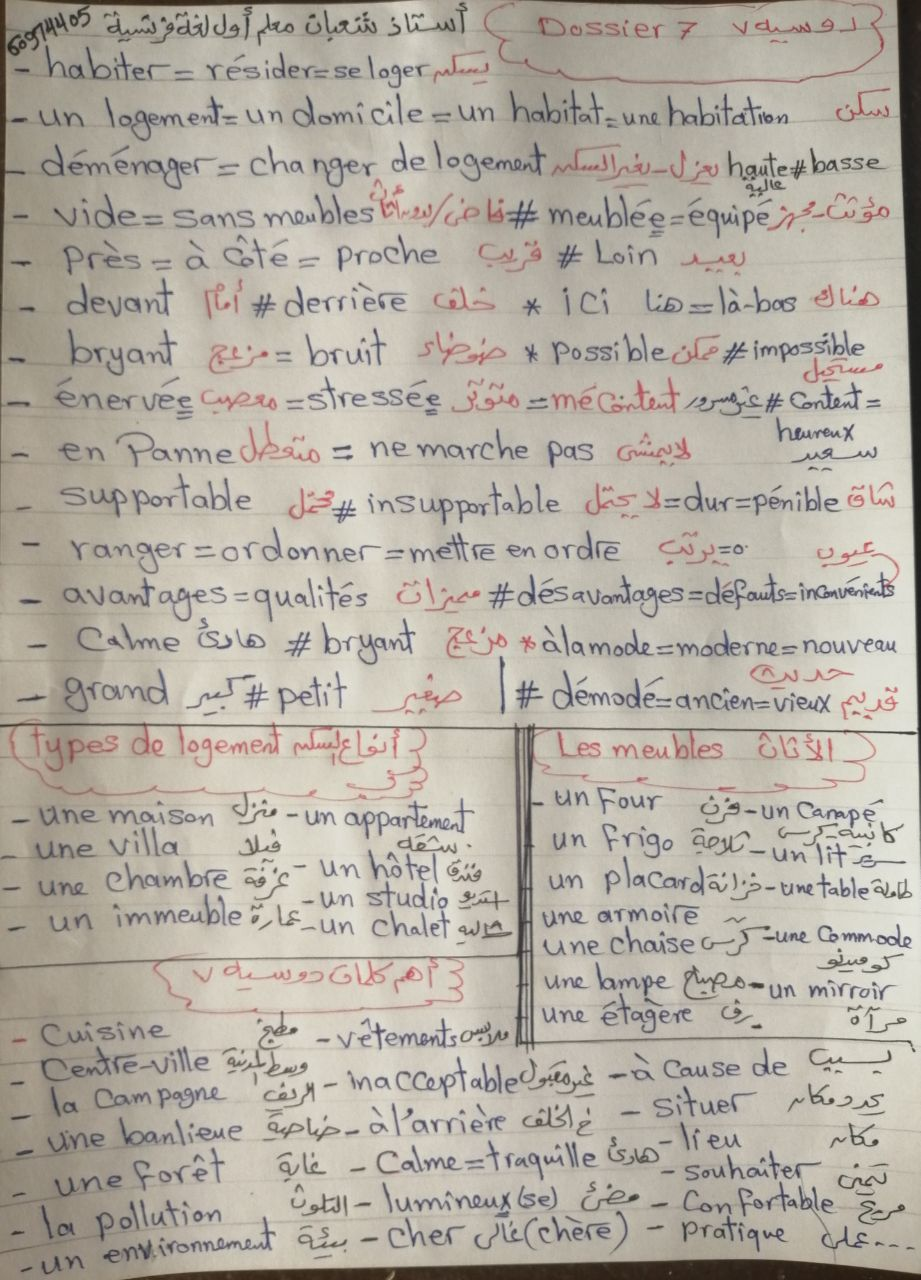 60974405 أستاذ شعبان معلم أول لغة فرنسية
Dossier 7 دوسيه ٧
- habiter = résider = se loger يسكن
- un logement = un domicile = un habitat = une habitation سكن
- déménager = changer de logement يعزل - يغير السكن haute # basse
عالية
- vide = sans meubles فاضى / بدون أثاث # meublée = équipé مؤثث - مجهز
- Près = à côté = proche قريب # Loin بعيد
- devant أمام # derrière خلف * ici هنا = là-bas هناك
- bryant مزعج = bruit ضوضاء * possible ممكن # impossible
مستحيل
- énervée معصب = stressée متوتر = mécontent غير مسرور # Content =
heureux
سعيد
- en Panne متعطل = ne marche pas لا يمشى
- supportable محتمل # insupportable لا يحتمل = dur = pénible شاق
- ranger = ordonner = mettre en ordre يرتب =٥
عيوب
- avantages = qualités مميزات # désavantages = défauts = inconvénients
- Calme هادئ # bryant مزعج * à la mode = moderne = nouveau
حديث
- grand كبير # petit صغير | # démodé = ancien = vieux قديم
types de logement أنواع السكن
- une maison منزل - un appartement
شقه
- une villa فيلا
- une chambre غرفة - un hôtel فندق
- un studio استديو
- un immeuble عمارة - un chalet شاليه
Les meubles الأثاث
- un Four فرن - un Canapé
كانبية كرسى
un frigo ثلاجة - un lit سرير
un placard خزانة - une table طاولة
une armoire ~
une chaise كرسى - une Commode
كومدينو
une lampe مصباح - un mirroir
مرآة
une étagère رف
أهم كلمات دوسيه ٧
- Cuisine مطبخ - vêtements ملابس
- Centre-ville وسط المدينة - inacceptable غير مقبول - à Cause de بسبب
- la Campagne الريف - à l'arrière فى الخلف - situer يحدد مكان
- une banlieue ضاحية - Calme = traquille هادئ - lieu مكان
- une forêt غابة - lumineux (se) مضئ - souhaiter يتمنى
- la pollution التلوث - cher غالى (chère) - Confortable مريح
- un environnement بيئة - pratique عملى ...